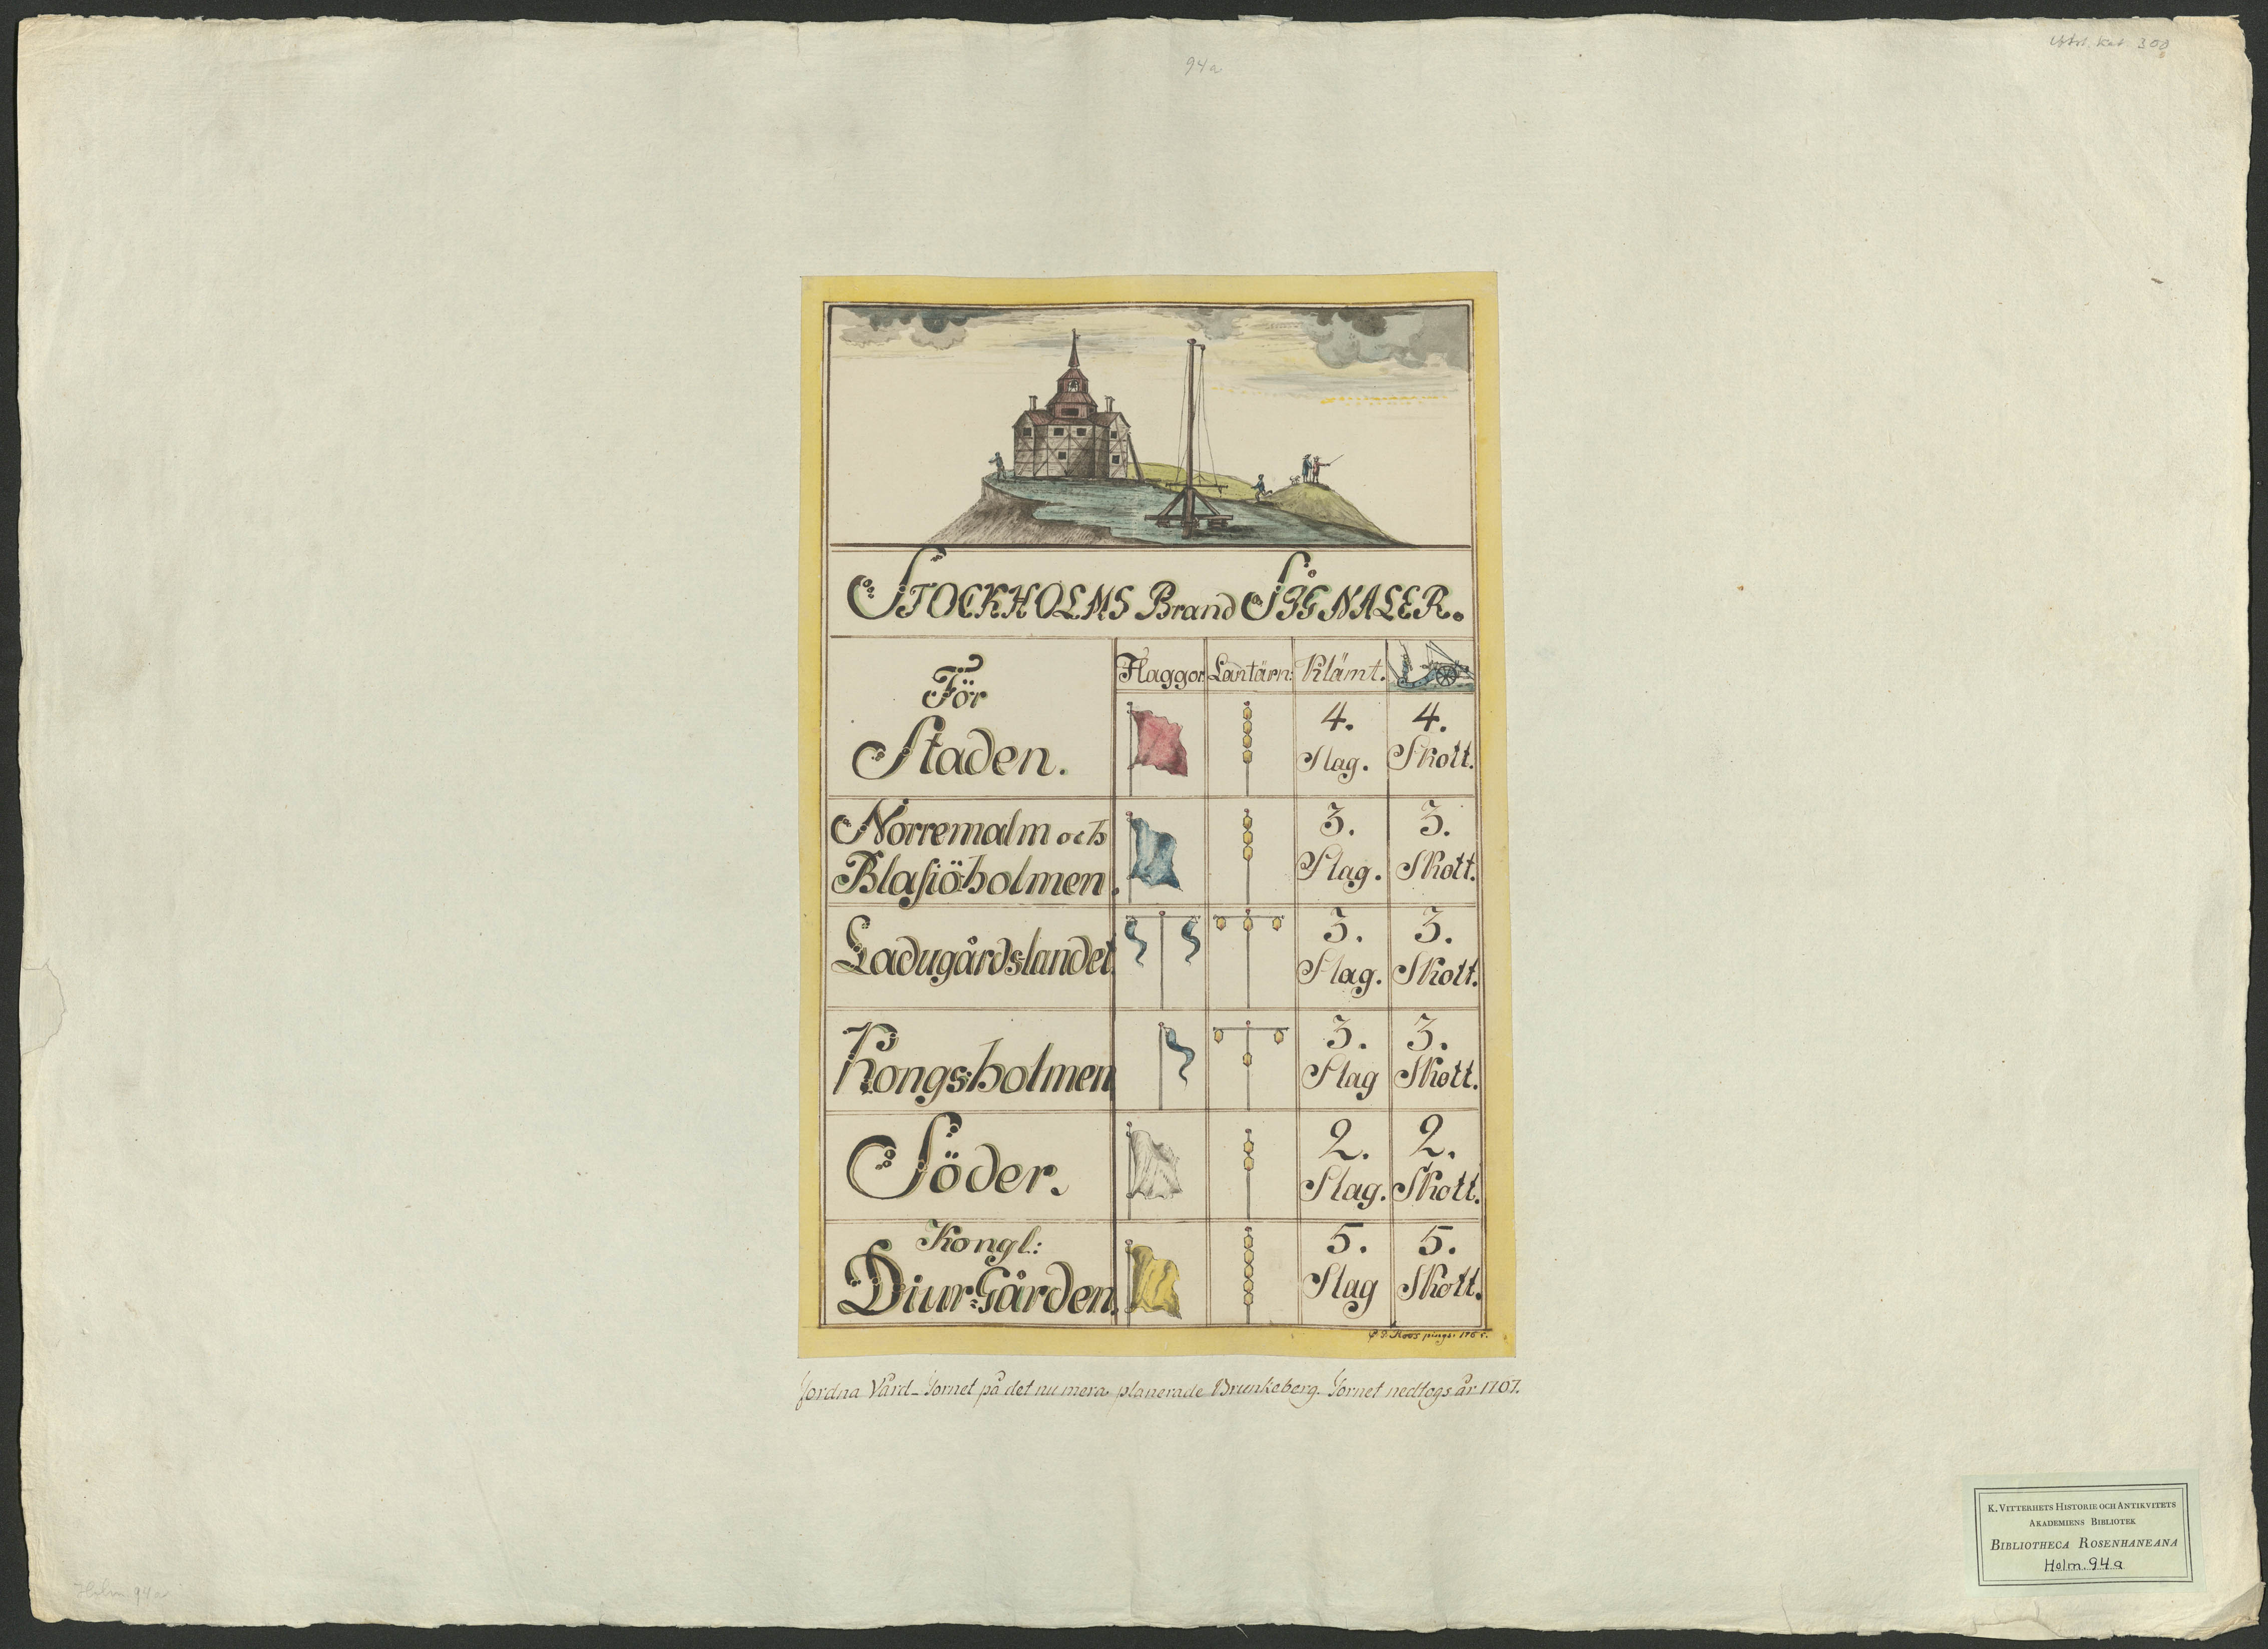 94a
300
STOCKHOLMS Brand SIGNALER.
För
Staden.
Flaggor
Lantärn:
Klämt.
4.
Slag.
4.
Skott.
Norremalm och
Blasiöholmen.
3.
Slag.
3.
Skott.
Ladugårdslandet
3.
Slag.
3.
Skott.
Kongsholmen
3.
Slag
3.
Skott.
Söder.
2.
Slag.
2.
Skott.
Kongl:
Diur=Gården.
5.
Slag
5.
Skott.
Roos pingx:
Jordna Vård-Tornet på det nu mera planerade Brunkeberg. Tornet nedtogs år 1767.
K. VITTERHETS HISTORIE OCH ANTIKVITETS
AKADEMIENS BIBLIOTEK
BIBLIOTHECA ROSENHANEANA
Holm. 94a
Holm 94a